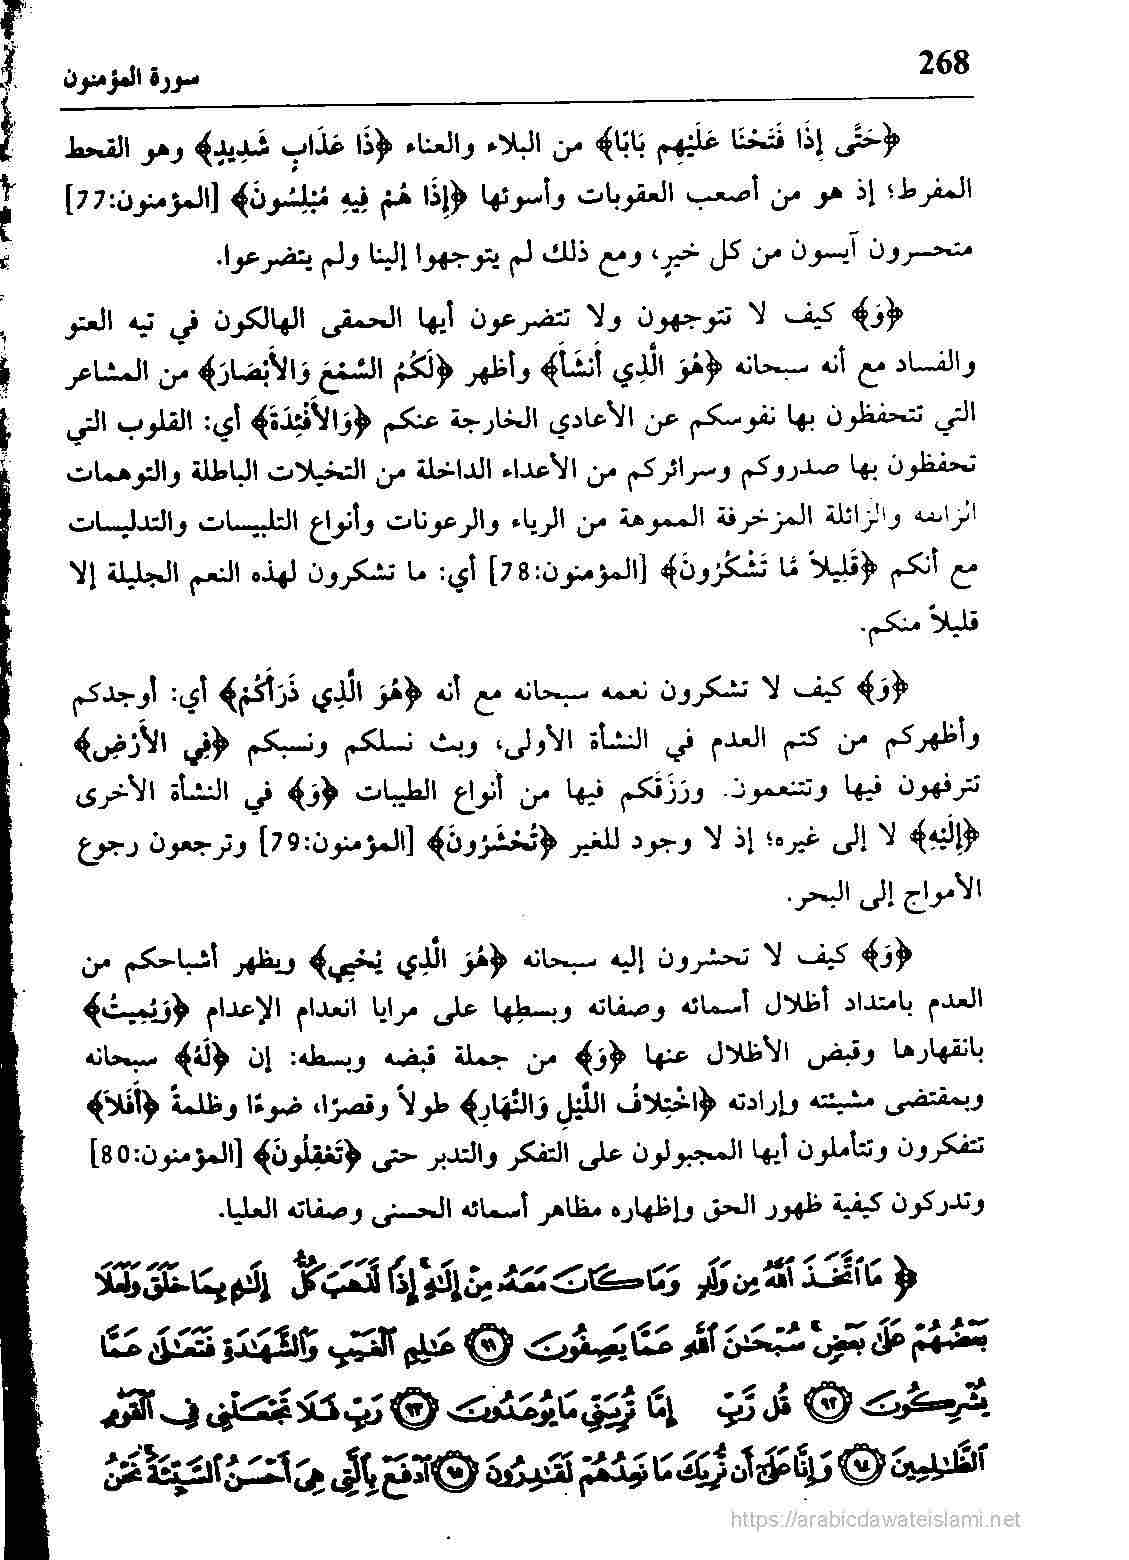 268
سورة المؤمنون
﴿حَتَّى إِذَا فَتَحْنَا عَلَيْهِم بَابًا﴾ من البلاء والعناء ﴿ذَا عَذَابٍ شَدِيدٍ﴾ وهو القحط
المفرط؛ إذ هو من أصعب العقوبات وأسوئها ﴿إِذَا هُمْ فِيهِ مُبْلِسُونَ﴾ [المؤمنون:77]
متحسرون آيسون من كل خيرٍ، ومع ذلك لم يتوجهوا إلينا ولم يتضرعوا.
﴿وَ﴾ كيف لا تتوجهون ولا تتضرعون أيها الحمقى الهالكون في تيه العتو
والفساد مع أنه سبحانه ﴿هُوَ الَّذِي أَنشَأَ﴾ وأظهر ﴿لَكُمُ السَّمْعَ وَالأَبْصَارَ﴾ من المشاعر
التي تتحفظون بها نفوسكم عن الأعادي الخارجة عنكم ﴿وَالأَفْئِدَةَ﴾ أي: القلوب التي
تحفظون بها صدروكم وسرائركم من الأعداء الداخلة من التخيلات الباطلة والتوهمات
الزائغة والزائلة المزخرفة المموهة من الرياء والرعونات وأنواع التلبيسات والتدليسات
مع أنكم ﴿قَلِيلاً مَّا تَشْكُرُونَ﴾ [المؤمنون:78] أي: ما تشكرون لهذه النعم الجليلة إلا
قليلاً منكم.
﴿وَ﴾ كيف لا تشكرون نعمه سبحانه مع أنه ﴿هُوَ الَّذِي ذَرَأَكُمْ﴾ أي: أوجدكم
وأظهركم من كتم العدم في النشأة الأولى، وبث نسلكم ونسبكم ﴿فِي الأَرْضِ﴾
تترفهون فيها وتتنعمون. ورَزَقَكم فيها من أنواع الطيبات ﴿وَ﴾ في النشأة الأخرى
﴿إِلَيْهِ﴾ لا إلى غيره؛ إذ لا وجود للغير ﴿تُحْشَرُونَ﴾ [المؤمنون:79] وترجعون رجوع
الأمواج إلى البحر.
﴿وَ﴾ كيف لا تحشرون إليه سبحانه ﴿هُوَ الَّذِي يُحْيِي﴾ ويظهر أشباحكم من
العدم بامتداد أظلال أسمائه وصفاته وبسطِها على مرايا انعدام الإعدام ﴿وَيُمِيتُ﴾
بانقهارها وقبض الأظلال عنها ﴿وَ﴾ من جملة قبضه وبسطه: إن ﴿لَهُ﴾ سبحانه
وبمقتضى مشيئته وإرادته ﴿اخْتِلافُ اللَّيْلِ وَالنَّهَارِ﴾ طولاً وقصرًا، ضوءًا وظلمةً ﴿أَفَلاَ﴾
تتفكرون وتتأملون أيها المجبولون على التفكر والتدبر حتى ﴿تَعْقِلُونَ﴾ [المؤمنون:80]
وتدركون كيفية ظهور الحق وإظهاره مظاهر أسمائه الحسنى وصفاته العليا.
﴿ مَا ٱتَّخَذَ ٱللَّهُ مِن وَلَدٍ وَمَا كَانَ مَعَهُۥ مِنْ إِلَٰهٍ ۚ إِذًا لَّذَهَبَ كُلُّ إِلَٰهٍۭ بِمَا خَلَقَ وَلَعَلَا
بَعْضُهُمْ عَلَىٰ بَعْضٍ ۚ سُبْحَٰنَ ٱللَّهِ عَمَّا يَصِفُونَ ﴿٩١﴾ عَٰلِمِ ٱلْغَيْبِ وَٱلشَّهَٰدَةِ فَتَعَٰلَىٰ عَمَّا
يُشْرِكُونَ ﴿٩٢﴾ قُل رَّبِّ إِمَّا تُرِيَنِّي مَا يُوعَدُونَ ﴿٩٣﴾ رَبِّ فَلَا تَجْعَلْنِي فِي ٱلْقَوْمِ
ٱلظَّٰلِمِينَ ﴿٩٤﴾ وَإِنَّا عَلَىٰٓ أَن نُّرِيَكَ مَا نَعِدُهُمْ لَقَٰدِرُونَ ﴿٩٥﴾ ٱدْفَعْ بِٱلَّتِي هِيَ أَحْسَنُ ٱلسَّيِّئَةَ ۚ نَحْنُ
https://arabicdawateislami.net